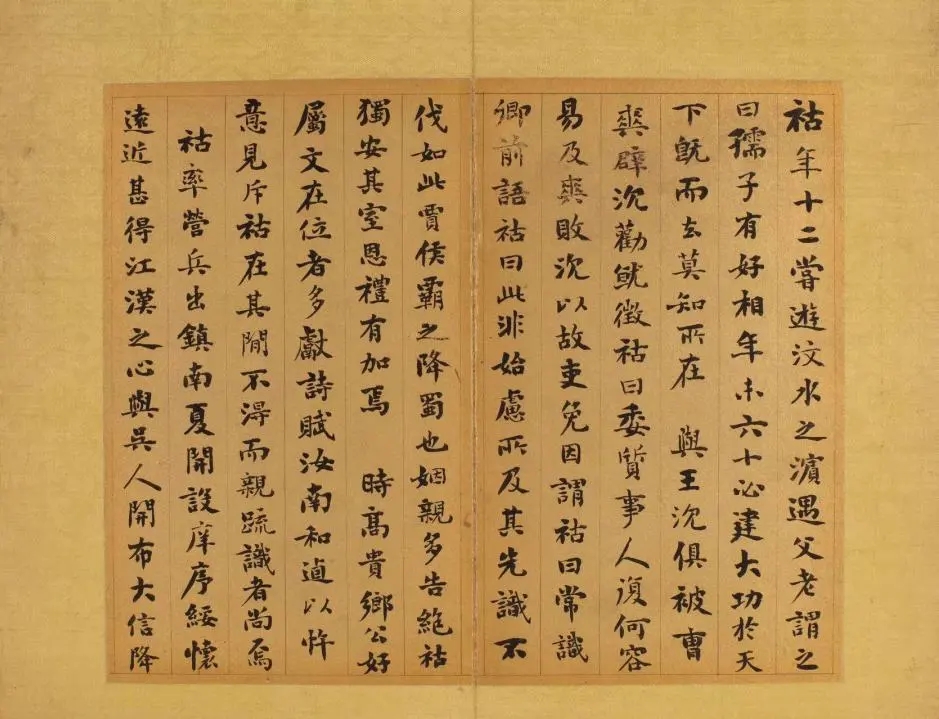 祜年十二嘗遊汶水之濵遇父老謂之
曰孺子有好相年未六十必建大功於天
下旣而去莫知所在　與王沈俱被曺
爽辟沈勸就徵祜曰委質事人復何容
易及爽敗沈以故吏免因謂祜曰常識
卿前語祜曰此非始慮所及其先識不
伐如此夏侯霸之降蜀也姻親多告絶祜
獨安其室恩禮有加焉　時髙貴鄉公好
屬文在位者多獻詩賦汝南和逌以忤
意見斥祜在其閒不得而親疏識者尚焉
祜率營兵出鎮南夏開設庠序綏懷
遠近甚得江漢之心與吳人開布大信降